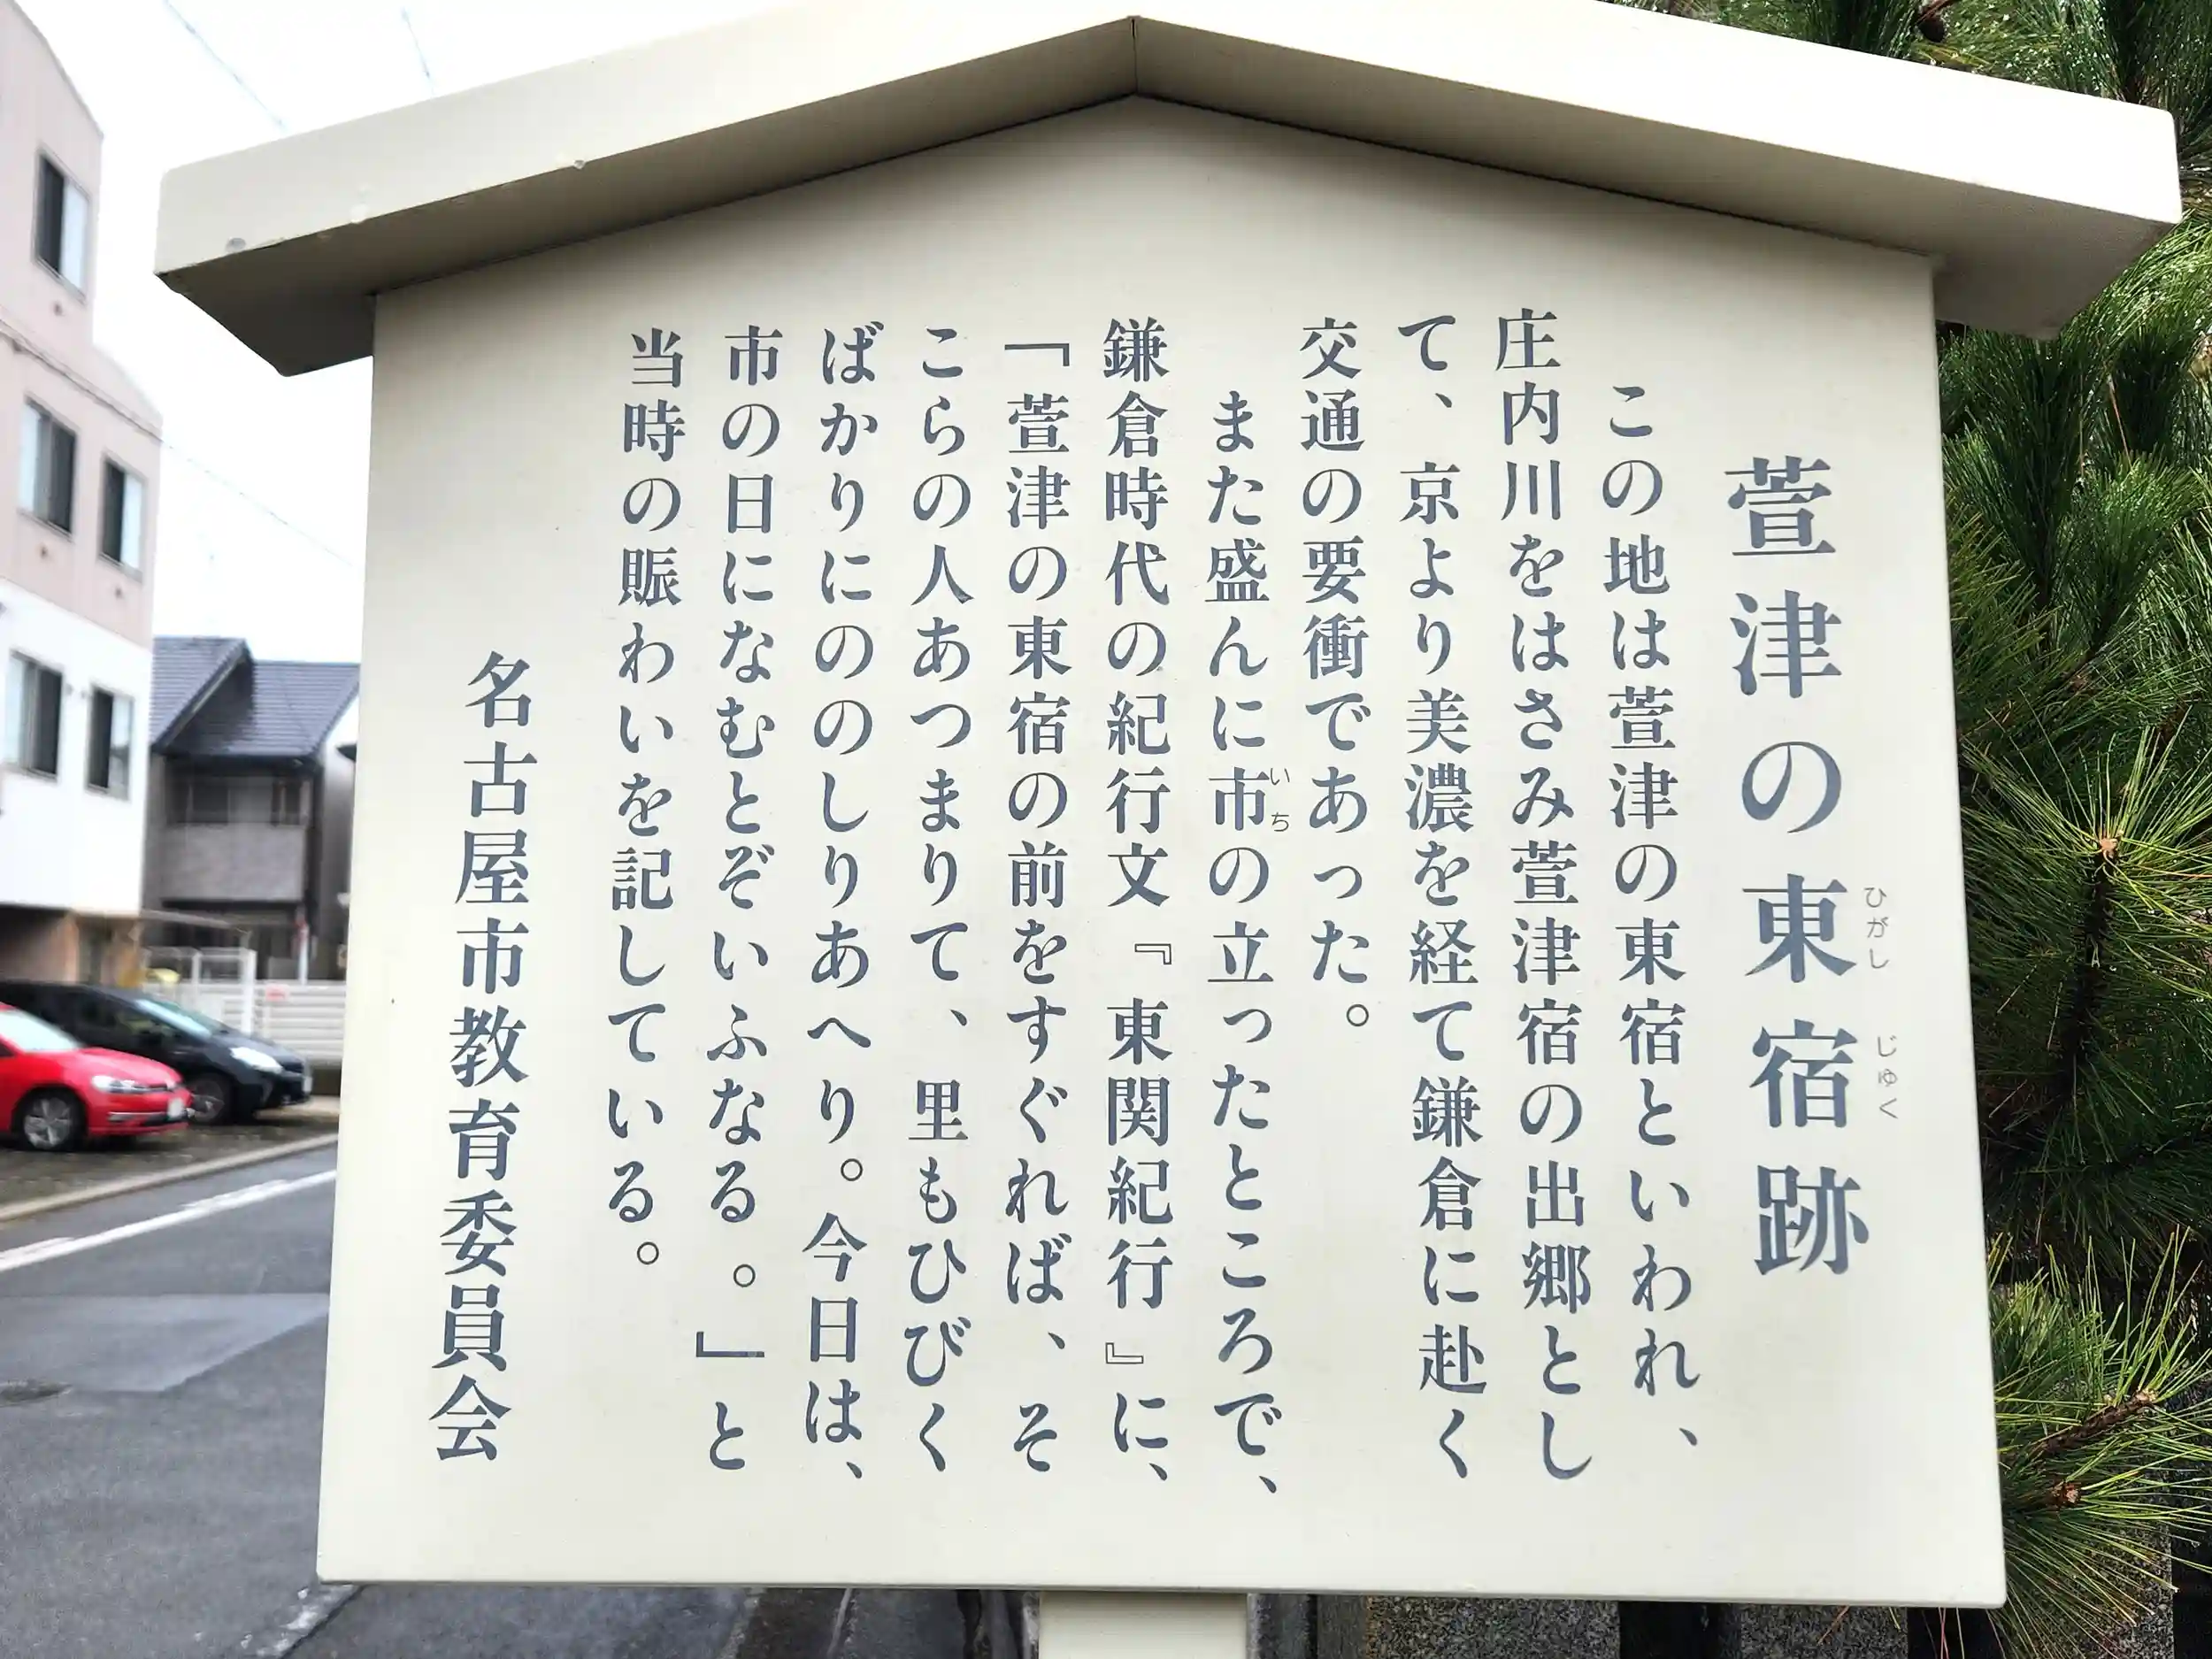 萱津の東宿跡
ひがし
じゅく
この地は萱津の東宿といわれ、
庄内川をはさみ萱津宿の出郷とし
て、京より美濃を経て鎌倉に赴く
交通の要衝であった。
また盛んに市の立ったところで、
いち
鎌倉時代の紀行文『東関紀行』に、
「萱津の東宿の前をすぐれば、そ
こらの人あつまりて、里もひびく
ばかりにののしりあへり。今日は、
市の日になむとぞいふなる。」と
当時の賑わいを記している。
名古屋市教育委員会